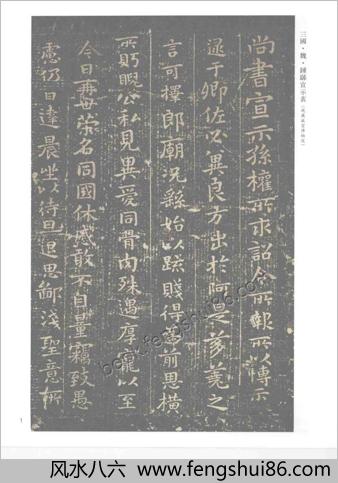 三國·魏·鍾繇宣示表
尚書宣示孫權所求詔令所報所以博示
逮于卿佐必冀良方出於阿是芻蕘之
言可擇郎廟況繇始以疏賤得爲前恩橫
所䀡公私見異愛同骨肉殊遇厚寵以至
今日再世榮名同國休慼敢不自量竊致愚
慮仍日達晨坐以待旦退思鄙淺聖意所
1
book.fengshui86.com
风水八六 www.fengshui86.com